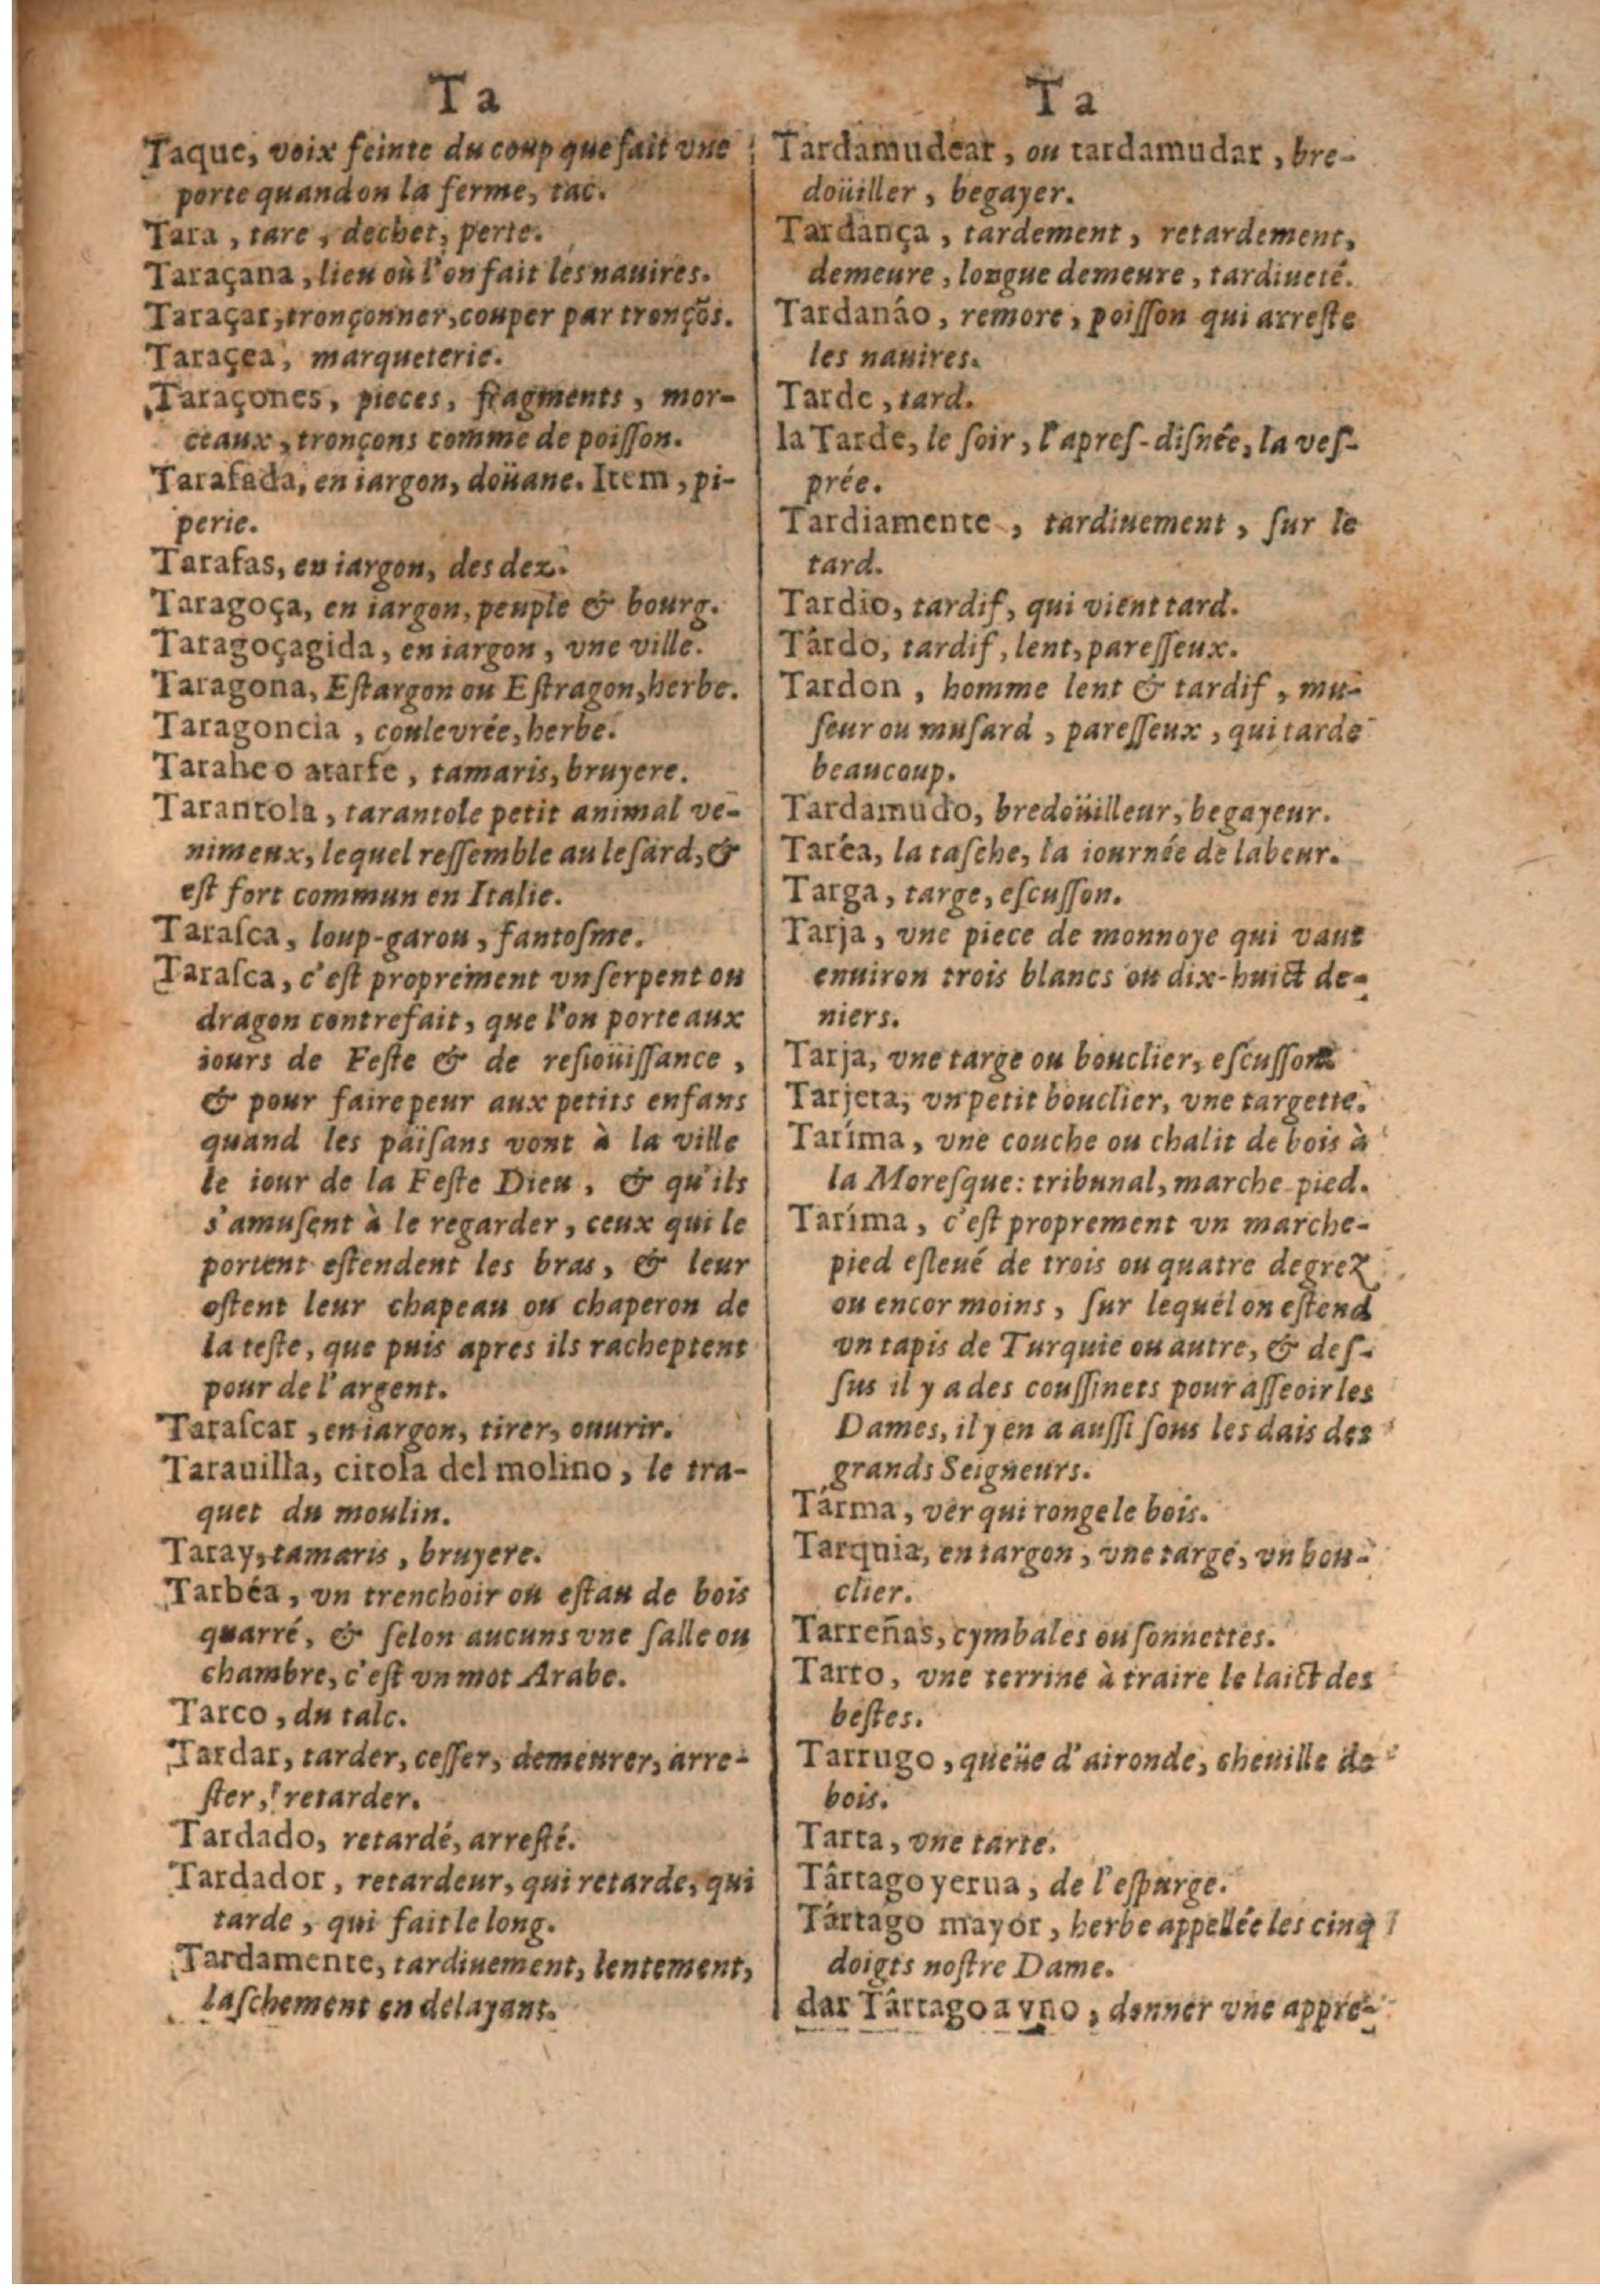 Ta
Taque, voix feinte du coup que fait vne
porte quand on la ferme, tac.
Tara, tare, dechet, perte.
Taraçana, lieu où l'on fait les nauires.
Taraçar, tronçonner, couper par tronçõs.
Taraçea, marqueterie.
Taraçones, pieces, fragments, mor-
ceaux, tronçons comme de poiſſon.
Tarafada, en iargon, doüane. Item, pi-
perie.
Tarafas, en iargon, des dez.
Taragoça, en iargon, peuple & bourg.
Taragoçagida, en iargon, vne ville.
Taragona, Eſtargon ou Eſtragon, herbe.
Taragoncia, coulevrée, herbe.
Tarahe o atarfe, tamaris, bruyere.
Tarantola, tarantole petit animal ve-
nimeux, lequel reſſemble au leſard, &
eſt fort commun en Italie.
Taraſca, loup-garou, fantoſme.
Taraſca, c'eſt proprement vn ſerpent ou
dragon contrefait, que l'on porte aux
iours de Feſte & de reſioüiſſance,
& pour faire peur aux petits enfans
quand les païſans vont à la ville
le iour de la Feſte Dieu, & qu'ils
s'amuſent à le regarder, ceux qui le
portent eſtendent les bras, & leur
oſtent leur chapeau ou chaperon de
la teſte, que puis apres ils racheptent
pour de l'argent.
Taraſcar, en iargon, tirer, ouurir.
Tarauilla, citola del molino, le tra-
quet du moulin.
Taray, tamaris, bruyere.
Tarbéa, vn trenchoir ou eſtau de bois
quarré, & ſelon aucuns vne ſalle ou
chambre, c'eſt vn mot Arabe.
Tarco, du talc.
Tardar, tarder, ceſſer, demeurer, arre-
ſter, retarder.
Tardado, retardé, arreſté.
Tardador, retardeur, qui retarde, qui
tarde, qui fait le long.
Tardamente, tardiuement, lentement,
laſchement en delayant.
Ta
Tardamudear, ou tardamudar, bre-
doüiller, begayer.
Tardança, tardement, retardement,
demeure, longue demeure, tardiueté.
Tardanáo, remore, poiſſon qui arreſte
les nauires.
Tarde, tard.
la Tarde, le ſoir, l'apreſ-diſnée, la veſ-
prée.
Tardiamente, tardiuement, ſur le
tard.
Tardio, tardif, qui vient tard.
Târdo, tardif, lent, pareſſeux.
Tardon, homme lent & tardif, mu-
ſeur ou muſard, pareſſeux, qui tarde
beaucoup.
Tardamudo, bredoüilleur, begayeur.
Taréa, la taſche, la iournée de labeur.
Targa, targe, eſcuſſon.
Tarja, vne piece de monnoye qui vaut
enuiron trois blancs ou dix-huict de-
niers.
Tarja, vne targe ou bouclier, eſcuſſon.
Tarjeta, vn petit bouclier, vne targette.
Taríma, vne couche ou chalit de bois à
la Moreſque: tribunal, marche pied.
Taríma, c'eſt proprement vn marche-
pied eſleué de trois ou quatre degrez
ou encor moins, ſur lequel on eſtend
vn tapis de Turquie ou autre, & deſ-
ſus il y a des couſſinets pour aſſeoir les
Dames, il y en a auſſi ſous les dais des
grands Seigneurs.
Tárma, ver qui ronge le bois.
Tarquia, en iargon, vne targe, vn bou-
clier.
Tarreñas, cymbales ou ſonnettes.
Tarro, vne terrine à traire le laict des
beſtes.
Tarrugo, queüe d'aironde, cheuille de
bois.
Tarta, vne tarte.
Târtago yerua, de l'eſpurge.
Tártago mayor, herbe appellée les cinq
doigts noſtre Dame.
dar Târtago a vno, donner vne appre-